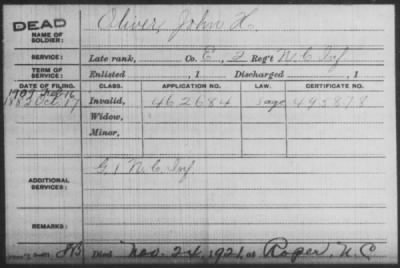 DEAD
NAME OF SOLDIER: Oliver, John H.
SERVICE: Late rank, Co. E, 2 Reg't N.C. Inf
TERM OF SERVICE: Enlisted , 1 Discharged , 1
DATE OF FILING. CLASS. APPLICATION NO. LAW. CERTIFICATE NO.
1907 Feb 16
1882 Oct 17 Invalid, 462684 493873
Widow,
Minor,
ADDITIONAL SERVICES: G 1 N.C. Inf
REMARKS:
Died Nov. 24, 1921, at Roper, N.C.